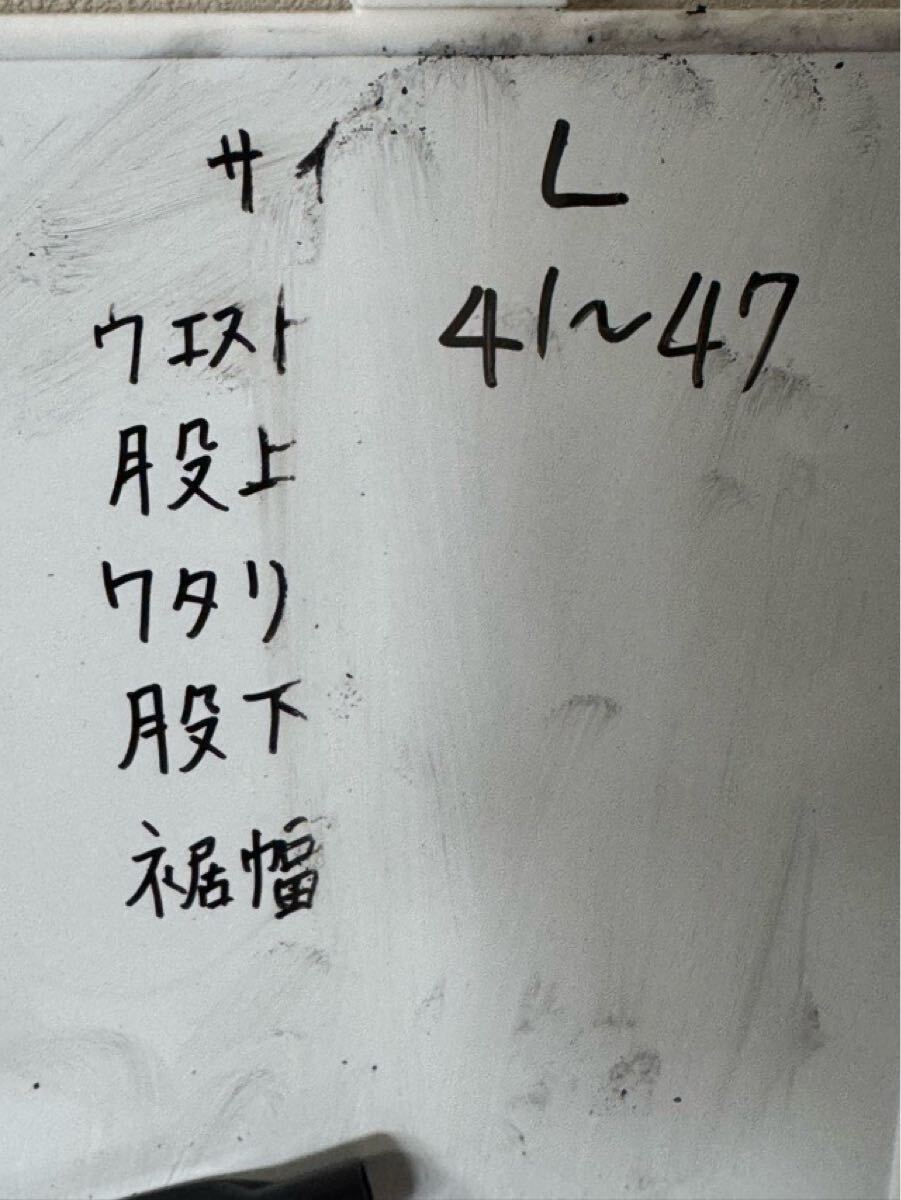 サイ L
ウエスト 41〜47
股上
ワタリ
股下
裾幅